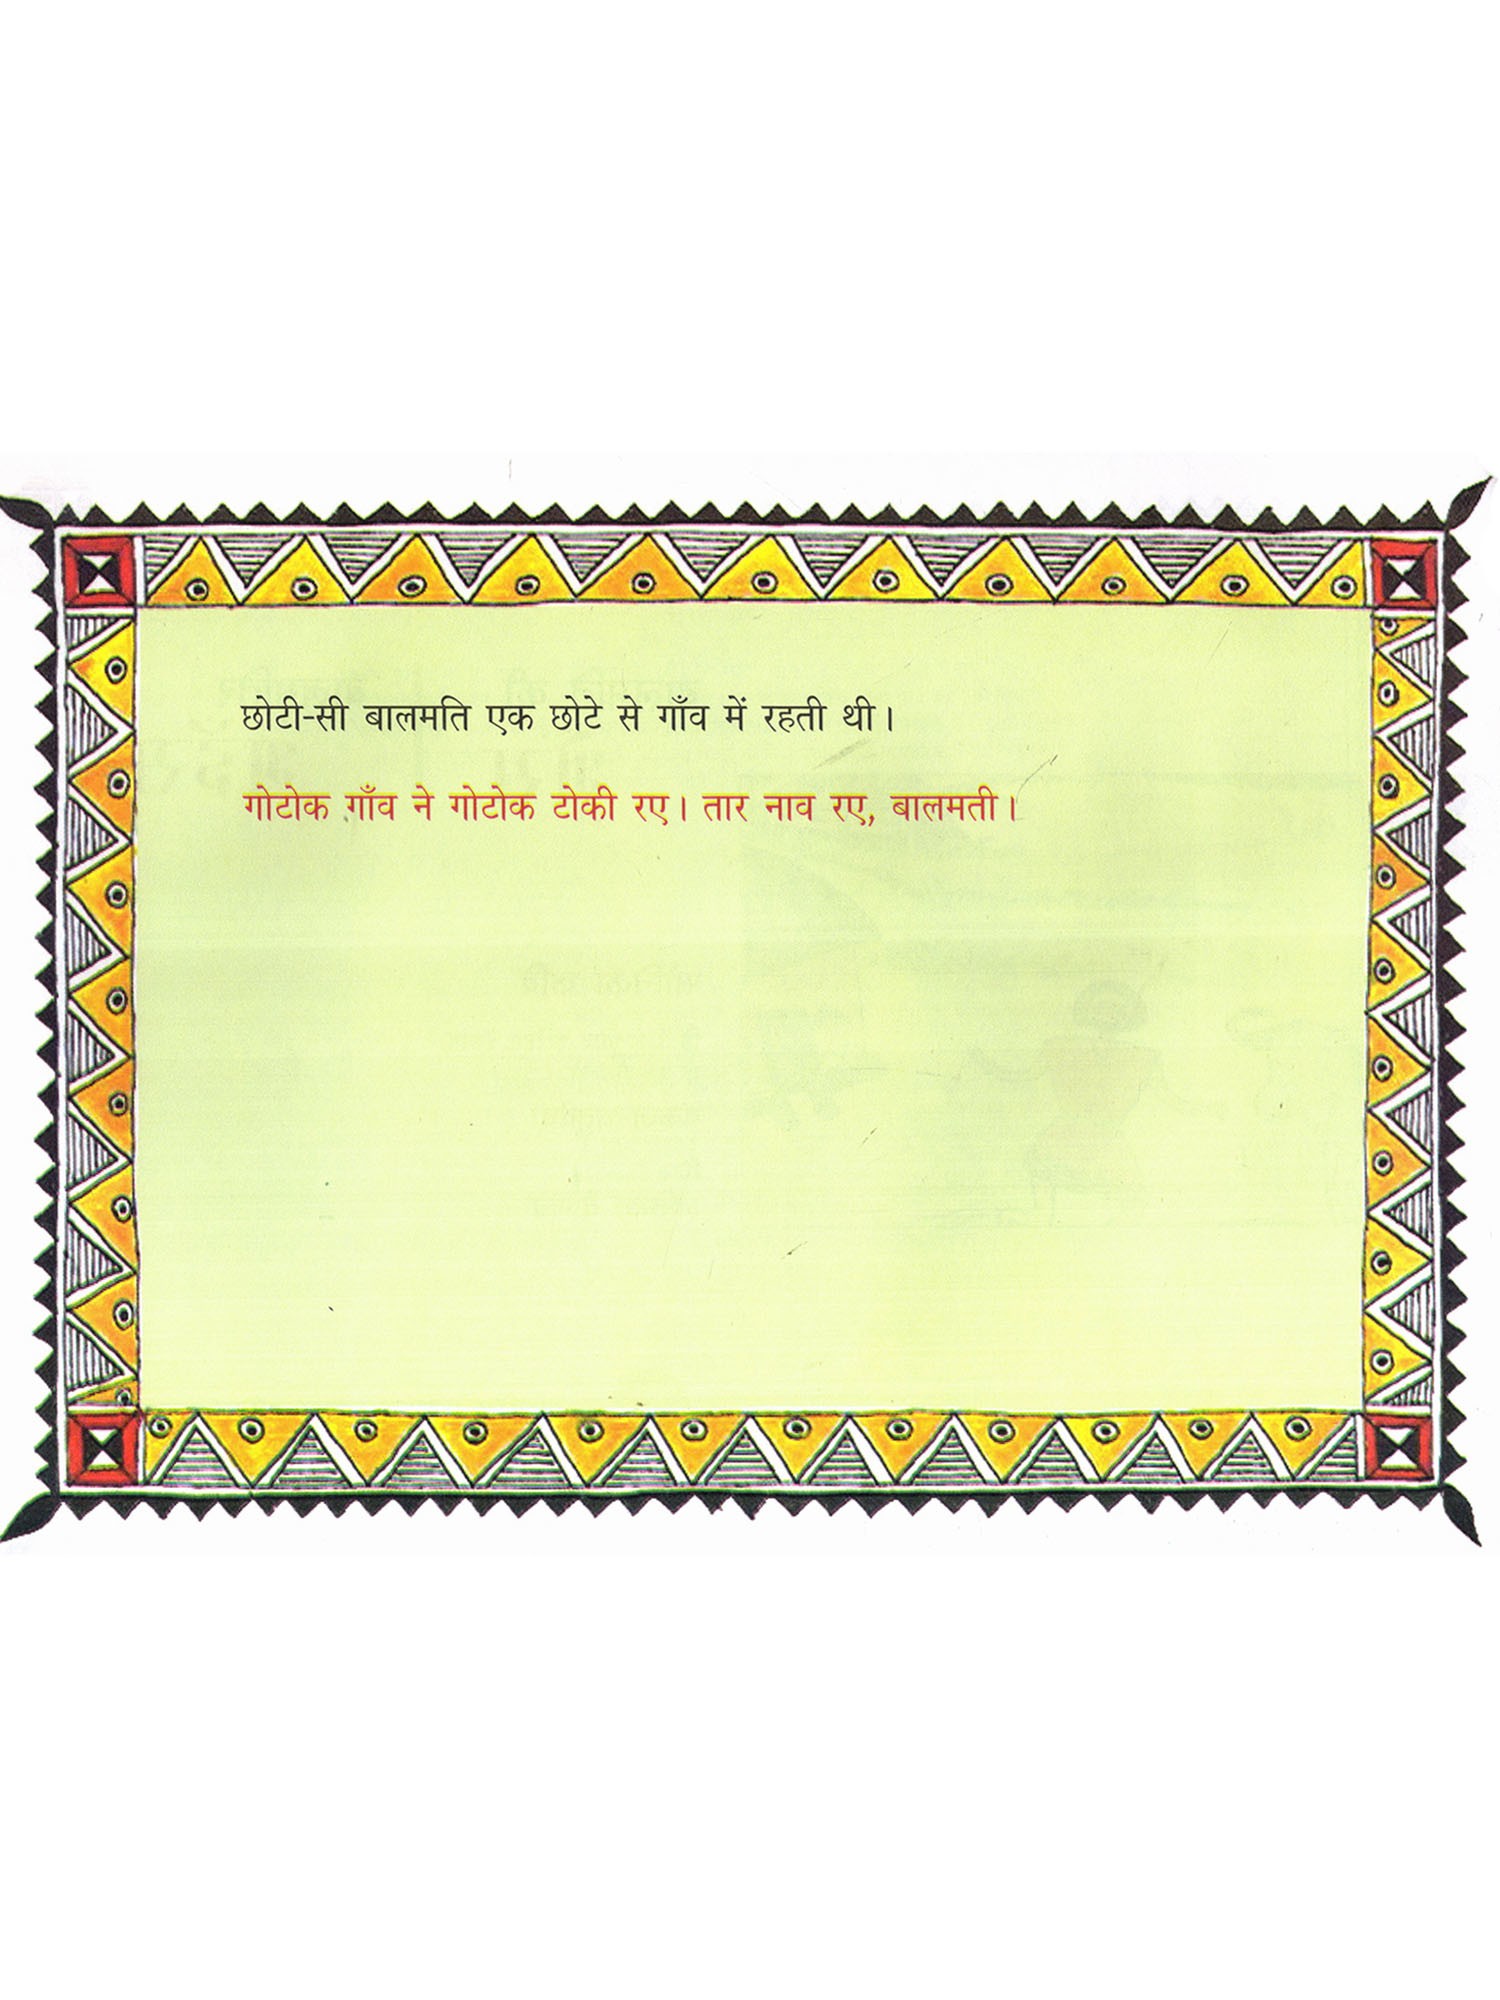 छोटी-सी बालमति एक छोटे से गाँव में रहती थी।
गोटोक गाँव ने गोटोक टोकी रए। तार नाव रए, बालमती।